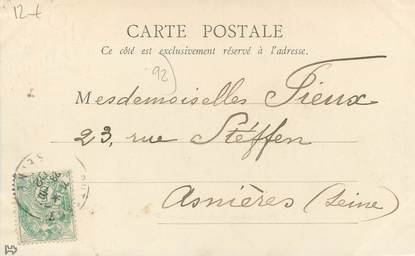 12 -
CARTE POSTALE
Ce côté est exclusivement réservé à l'adresse.
92)
Mesdemoiselles Fieux
23, rue Stéffen
Asnières (Seine)